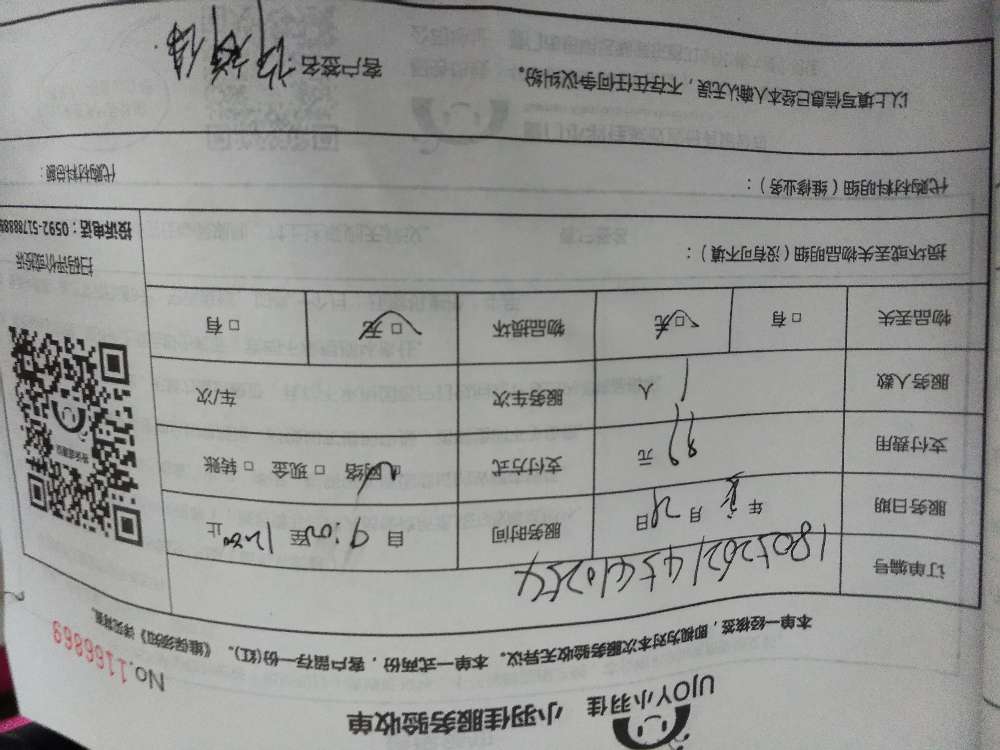 UJOY小羽佳 小羽佳服务验收单
No.1166869
本单一经核签，即视为对本次服务验收无异议。本单一式两份，客户留存一份(红)。《维保须知》详见背面。
订单编号
服务日期 年 月 日 服务时间 自 9:00 至 12:00 止
支付费用 元 支付方式 □ 网络 □ 现金 □ 转账
服务人数 1 人 服务车次 车/次
物品丢失 □ 有 □ 无 物品损坏 □ 无 □ 有
损坏或丢失物品明细（没有可不填）：
扫码评价或投诉
投诉电话：0592-5178888
代购材料明细（维修业务）： 代购材料总额：
以上填写信息已经本人确认无误，不存在任何争议纠纷。
客户签名：